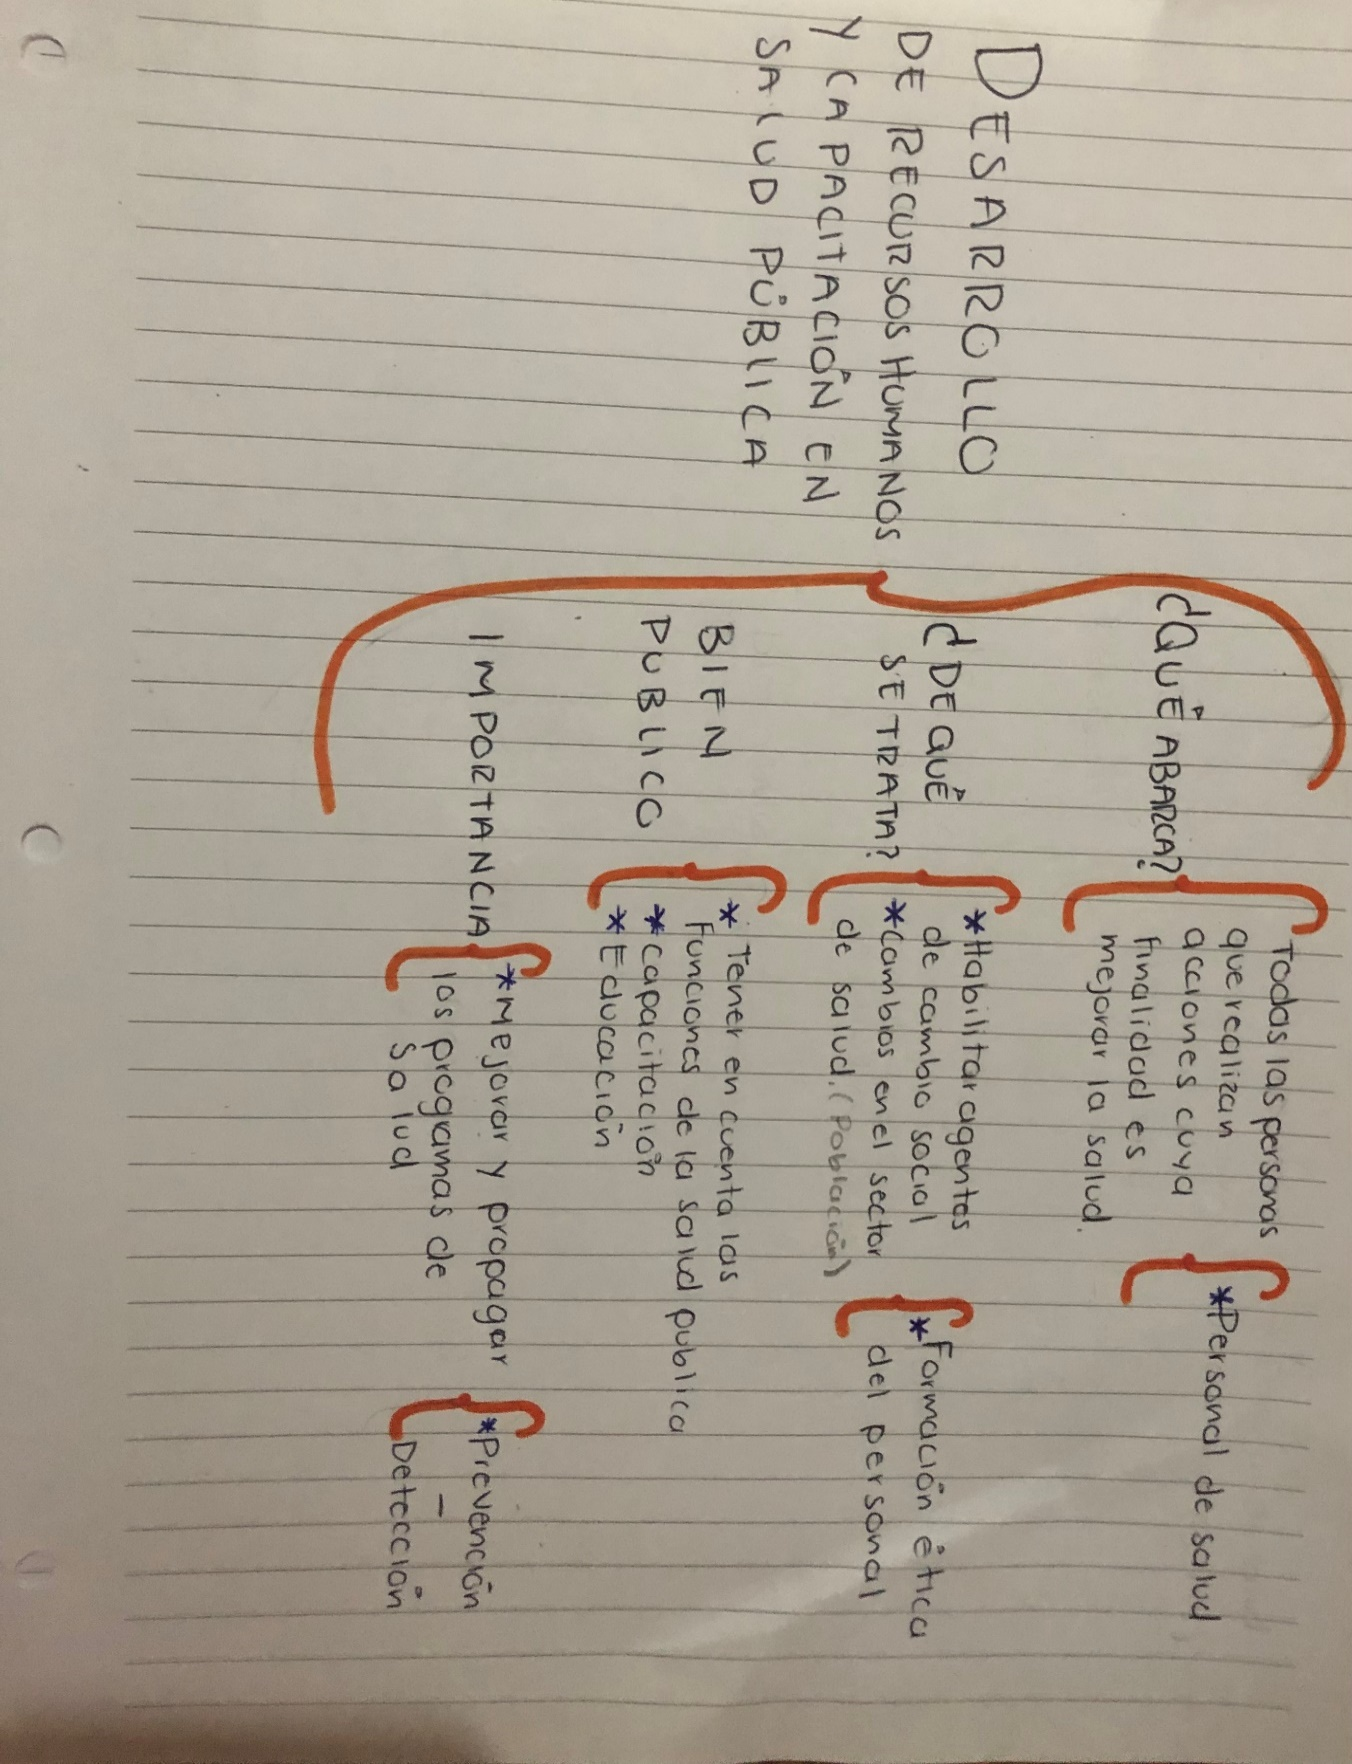 DESARROLLO
DE RECURSOS HUMANOS
Y CAPACITACIÓN EN
SALUD PÚBLICA
¿QUÉ ABARCA?
Todas las personas
que realizan
acciones cuya
finalidad es
mejorar la salud.
*Personal de salud
¿DE QUÉ
SE TRATA?
*Habilitar agentes
de cambio social
*Cambios en el sector
de salud. (Población)
*Formación ética
del personal
BIEN
PUBLICO
* Tener en cuenta las
Funciones de la salud publica
*Capacitación
*Educación
IMPORTANCIA
*Mejorar y propagar
los programas de
Salud
*Prevención
-
Detección